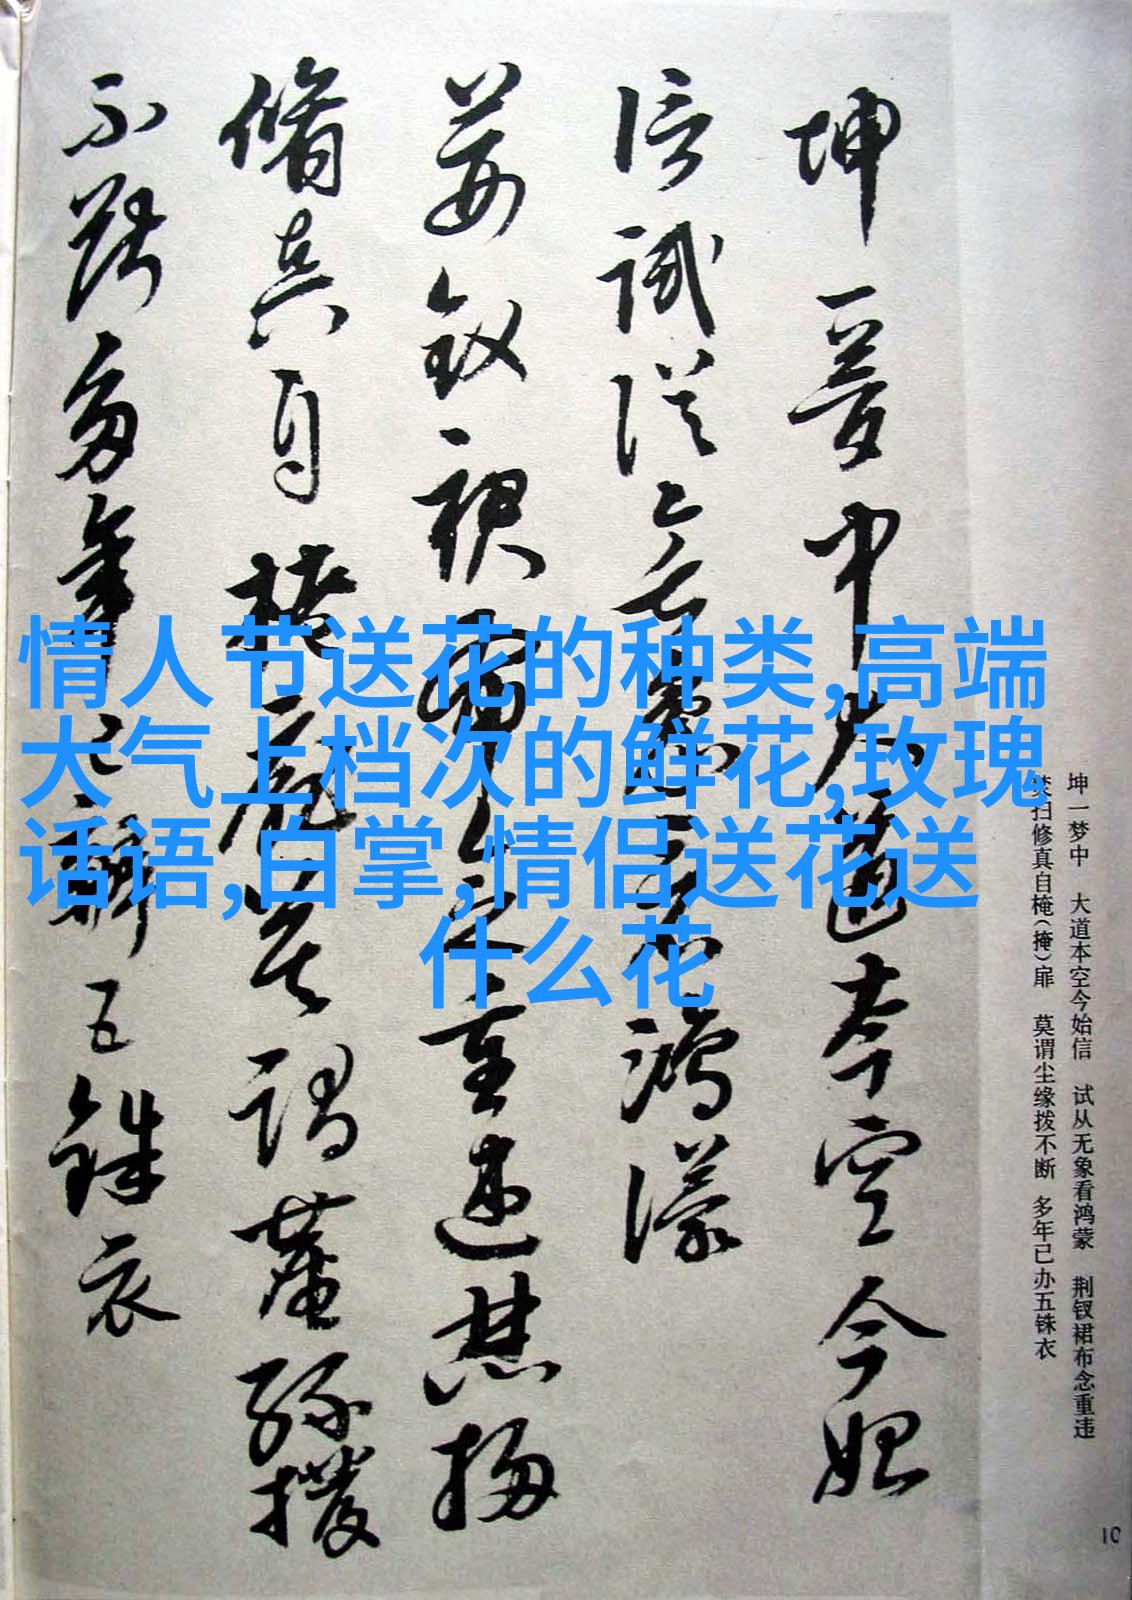 坤一梦中　大道本空今始信　试从无象看鸿蒙　荆钗裙布念重违
焚扫修真自（掩）扉　莫谓尘缘拨不断　多年已办五铢衣
坤一夢中大道本空今始
信試從無象看鴻濛
荊釵裙布念重違焚掃
脩真自掩扉莫謂塵緣撥
不斷多年已辦五銖衣
情人节送花的种类,高端
大气上档次的鲜花,玫瑰
话语,白掌,情侣送花送
什么花
10